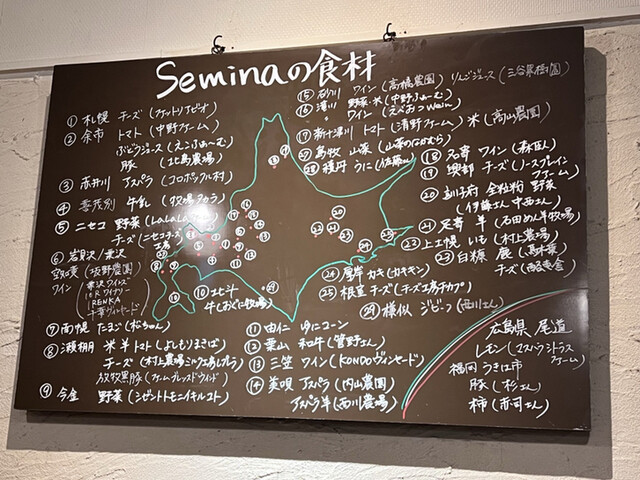 Seminaの食材
① 札幌 チーズ (ファットリアビオ)
② 余市 トマト (中野ファーム)
ぶどうジュース (えこふぁーむ)
豚 (北島農場)
③ 赤井川 アスパラ (コロポックル村)
④ 喜茂別 牛乳 (牧場タカラ)
⑤ ニセコ 野菜 (LaLaLa
チーズ (ニセコチーズ
工房
⑥ 岩見沢/栗沢
(坂野農園)
ワイン
栗沢ワインズ
10Rワイナリー
RENKA
⑦ 南幌 たまご (松ちゃん)
⑧ 瀬棚 米 羊 トマト (よしもりまきば)
チーズ (村上農場ミルク工房レプレラ)
放牧黒豚 (ファームブレッスドウィンド)
⑨ 今金 野菜
⑩ 北斗
牛 (おぐに牧場)
⑪ 由仁 ゆにコーン
⑫ 葉山 和牛 (菅野さん)
⑬ 三笠 ワイン (KONDOヴィンヤード)
⑭ 美唄 アスパラ (内山農園)
アスパラ羊 (西川農場)
⑮ 砂川 ワイン (高橋農園) りんごジュース (三谷果樹園)
⑯ 滝川 野菜・米 (中野ふぁーむ)
ワイン
⑰ 新十津川 トマト (清野ファーム) 米 (高山農園)
㉗ 島牧 山菜 (山菜のなかむら)
㉘ 積丹 うに (佐藤
⑱ 名寄 ワイン (森臥)
⑲ 興部 チーズ (ノースプレイン
ファーム)
⑳ 剣淵 全粒粉 野菜
(伊藤さん 中西さん)
㉑ 足寄 羊 (石田めん羊牧場)
㉒ 上士幌 いも (村上農場)
㉓ 白糠 鹿 (馬木葵)
チーズ (酪恵舎)
㉔ 厚岸 カキ (カキキン)
㉕ 根室 チーズ (チーズ工房チカプ)
㉙ 様似 ジビーフ (西川さん)
広島県 尾道
レモン (シトラス
ファーム)
福岡 うきは市
豚 (杉さん)
柿 (赤司さん)